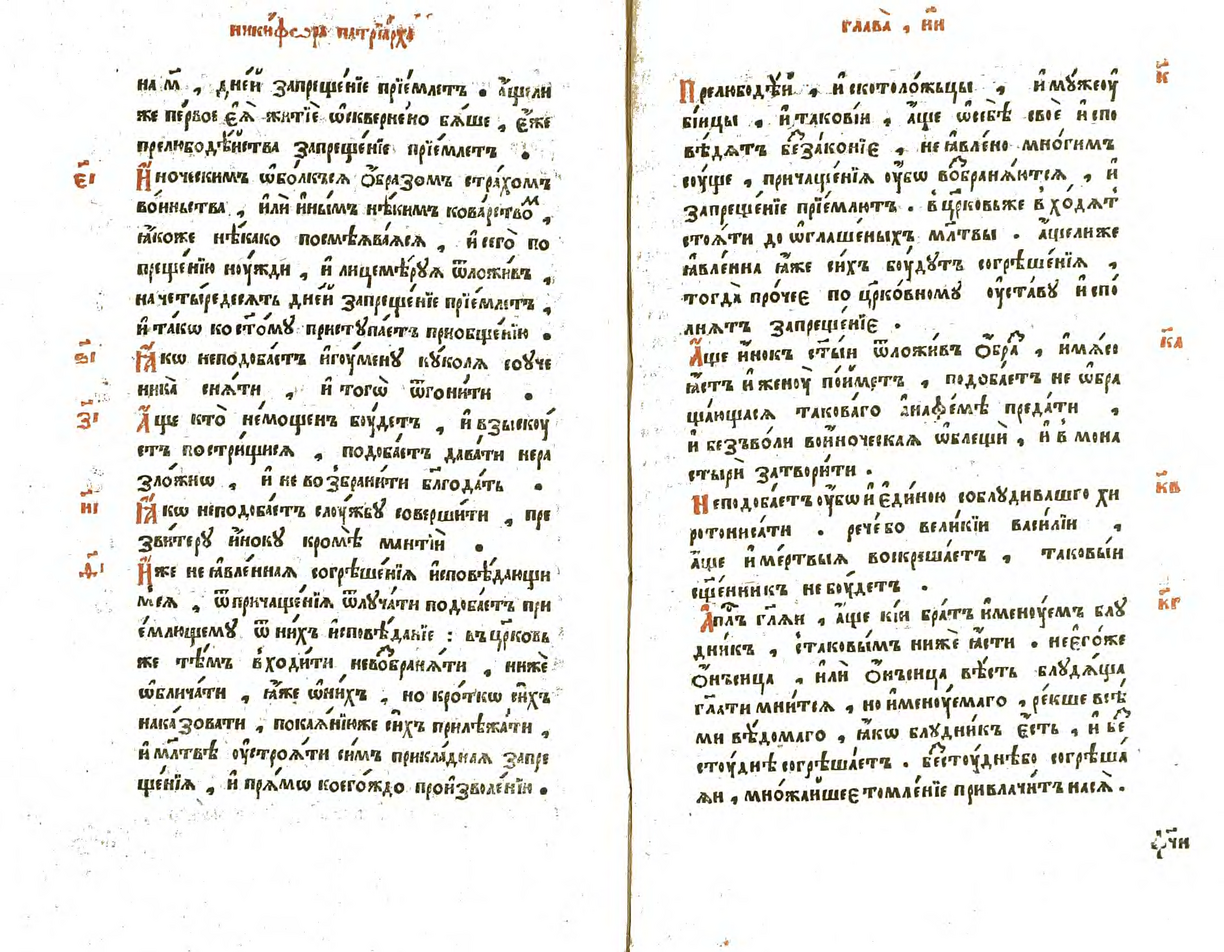 никифѡра патрїарха
на м҃ , дне́й запреще́нїе прїе́млетъ . а҆́щели
же пе́рвое є҆ѧ̀ житїѐ ѡ҆скверне́но бѧ́ше , є҆́же
прелюбодѣ́йства запреще́нїе прїе́млетъ .
є҃і
И҆́ноческимъ ѡ҆бо́лкъсѧ о҆́бразомъ стра́хомъ
во́иньства , и҆лѝ и҆ны́мъ нѣ́кимъ кова́рствоⷨ ,
ꙗ҆́коже нѣ́како посмѣѧ́ваѧсѧ , и҆ сего̀ по
преще́нїю ноу́жди , и҆ лицемѣ́руѧ ѿложи́въ ,
на четы́редесѧть дне́й запреще́нїе прїе́млетъ ,
и҆ та́кѡ ко ст҃о́му приступа́етъ приѻбще́нїю .
ѕ҃і
Ꙗ҆́кѡ неподоба́етъ и҆гоу́мену ку́колѧ со уче
ника̀ снѧ́ти , и҆ того̀ ѿгони́ти .
з҃і
А҆́ще кто̀ не́мощенъ боу́детъ , и҆ взыскоу́
етъ постри́щисѧ , подоба́етъ дава́ти нера
зло́жнѡ , и҆ не возбрани́ти бл҃года́ть .
и҃і
Ꙗ҆́кѡ неподоба́етъ слоу́жбу соверши́ти , пре
зви́теру и҆́ноку кромѣ̀ манті́и .
ѳ҃і
И҆́же неꙗ҆вле́ннаѧ согрѣше́нїѧ и҆сповѣ́дающи
мсѧ , ѿ причаще́нїѧ ѿлуча́ти подоба́етъ прі
е́млющему ѿ ни́хъ и҆сповѣ́данїе : въ цр҃ковь
же тѣ́мъ входи́ти невоⷥбранѧ́ти , нижѐ
ѡ҆блича́ти , ꙗ҆́же ѡ҆ ни́хъ , но кро́ткѡ си́хъ
нака́зовати , покаѧ́нїюже си́хъ прилѣжа́ти ,
и҆ мл҃твѣ оу҆строѧ́ти си́мъ прикла́днаѧ запре
ще́нїѧ , и҆ прѧ́мѡ коего́ждо произволе́нїю .
глава̀ , н҃и
к҃
Прелюбодѣ́и , и҆ скотоло́жьцы , и҆ мужеоу
бі́йцы , и҆ такові́и , а҆́ще ѡ҆ себѣ̀ своѐ и҆спо
вѣ́дѧтъ беззако́нїе , неꙗ҆вле́но мно́гимъ
соу́ще , причаще́нїѧ оу҆́бѡ воⷥбранѧ́ютсѧ , и҆
запреще́нїе прїе́млютъ . в цр҃ковьже в хо́дѧт
стоѧ́ти до ѡ҆глаше́ныхъ мл҃твы . а҆́щелиже
ꙗ҆вле́нна ꙗ҆́же си́хъ боу́дутъ согрѣше́нїѧ ,
тогда̀ про́чее по цр҃ко́вному оу҆ста́ву и҆спо
лнѧ́тъ запреще́нїе .
к҃а
А҆́ще и҆́нокъ ст҃ы́и ѿложи́въ о҆́браⷥ , и҆ мѧ́со
ꙗ҆́стъ и҆ женоу̀ по́йметъ , подоба́етъ не ѡ҆бра
ща́ющасѧ такова́го а҆на́ѳемѣ преда́ти ,
и҆ безъ во́ли во и҆́ноческаѧ ѡ҆блещѝ , и҆ в мона
стырѝ затвори́ти .
к҃в
Неподоба́етъ оу҆́бѡ и҆ є҆ди́ною соблуди́вшаго хи
ротониса́ти . рече́ бо вели́кїи васи́лїи ,
а҆́ще и҆ ме́ртвыѧ воскреша́етъ , таковы́и
сщ҃е́нникъ не боу́детъ .
к҃г
А҆пⷭ҇лъ гл҃ѧй , а҆́ще кі́и бра́тъ и҆меноу́емъ блу
дни́къ , с таковы́мъ нижѐ ꙗ҆́сти . не є҆го́же
о҆́нъсица , и҆лѝ о҆́нъсица вѣ́сть блудѧ́ща
гл҃ати мни́тсѧ , но и҆менѹ́емаго , ре́кше всѣ́
ми вѣ́домаго , ꙗ҆́кѡ блудни́къ є҆́сть , и҆ беⷥ
стоу́днѣ согрѣша́етъ . беⷥстоу́днѣ бо согрѣша
ѧ́и , мно́жаишее томле́нїе привлачи́тъ на сѧ̀ .
ф҃чи